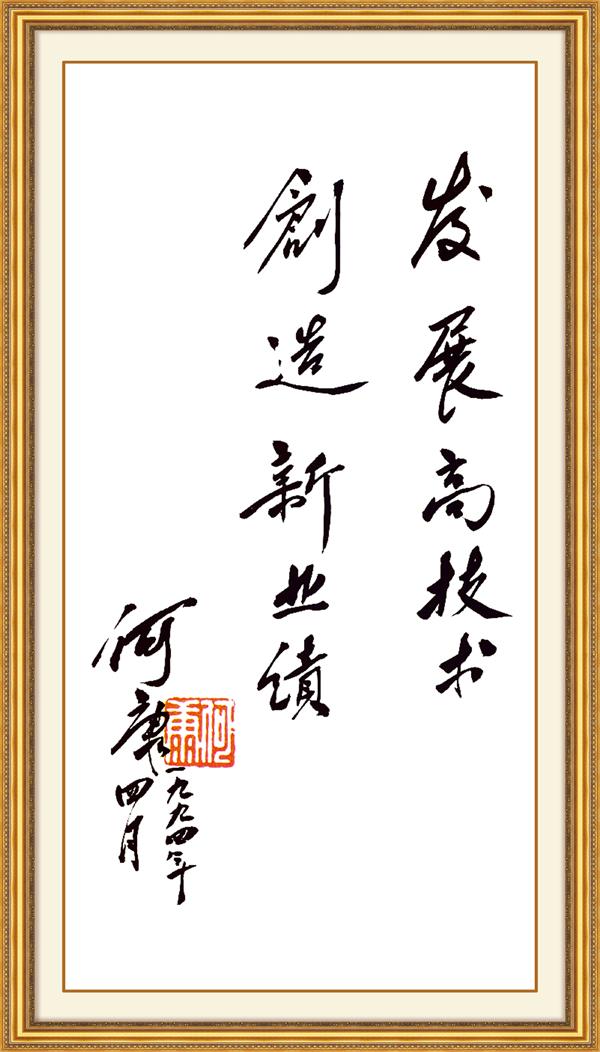 发展高技术
創造新业績
何康
一九九四年
四月
何康